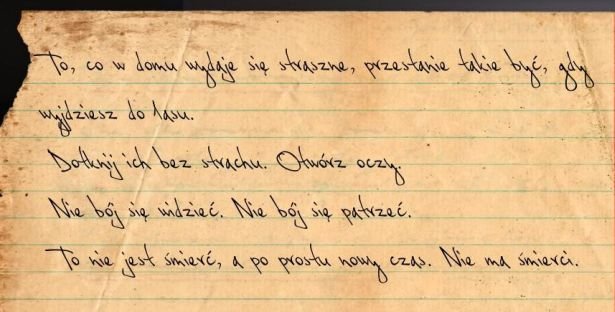 To, co w domu wydaje się straszne, przestanie takie być, gdy
wyjdziesz do lasu.
Dotknij ich bez strachu. Otwórz oczy.
Nie bój się widzieć. Nie bój się patrzeć.
To nie jest śmierć, a po prostu nowy czas. Nie ma śmierci.